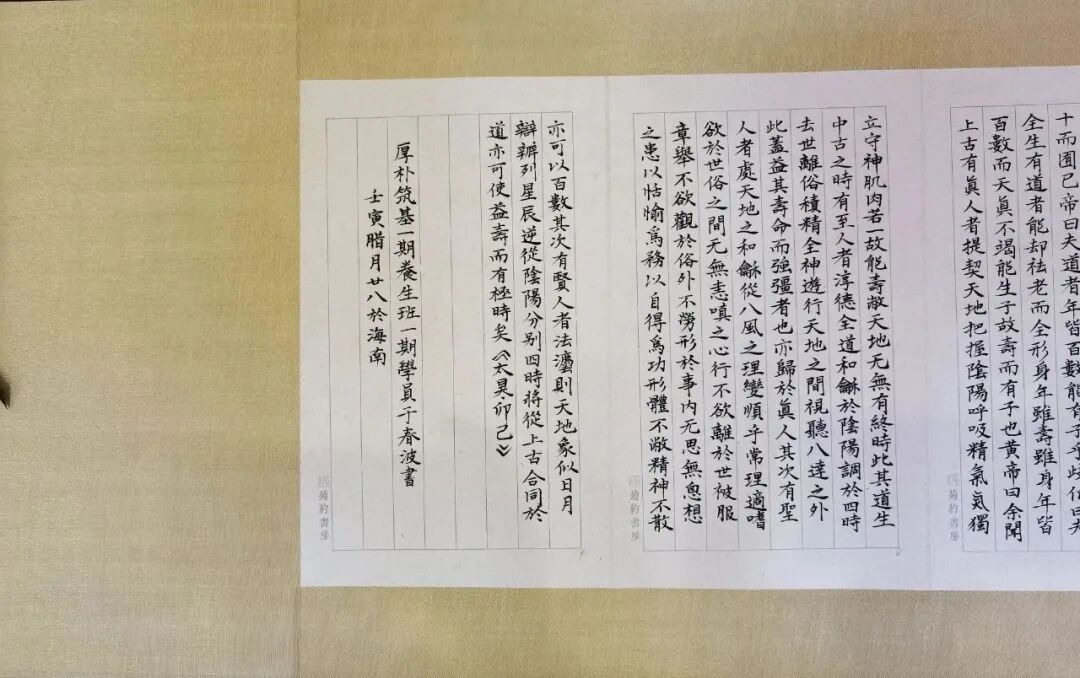 十而圉已帝曰夫道者年皆百數能有子乎岐伯曰夫
全生有道者能却祛老而全形身年雖壽雖身年皆
百數而天眞不竭能生子故壽而有子也黄帝曰余聞
上古有眞人者提契天地把握陰陽呼吸精氣气獨
立守神肌肉若一故能壽敝天地无無有終時此其道生
中古之時有至人者淳德全道和龢於陰陽調於四時
去世離俗積精全神遊行天地之間視聽八達之外
此蓋益其壽命而強彊者也亦歸於眞人其次有聖
人者處天地之和龢從八風之理變順乎常理適嗜
欲於世俗之間无無恚嗔之心行不欲離於世被服
章舉不欲觀於俗外不勞形於事内无思無恖想
之患以恬愉爲務以自得爲功形體不敝精神不散
亦可以百數其次有賢人者法灋則天地象似日月
辯辨列星辰逆從陰陽分别四時將從上古合同於
道亦可使益壽而有極時矣《太昊卯己》
厚朴筑基一期養生班一期學員于春波書
壬寅腊月廿八於海南